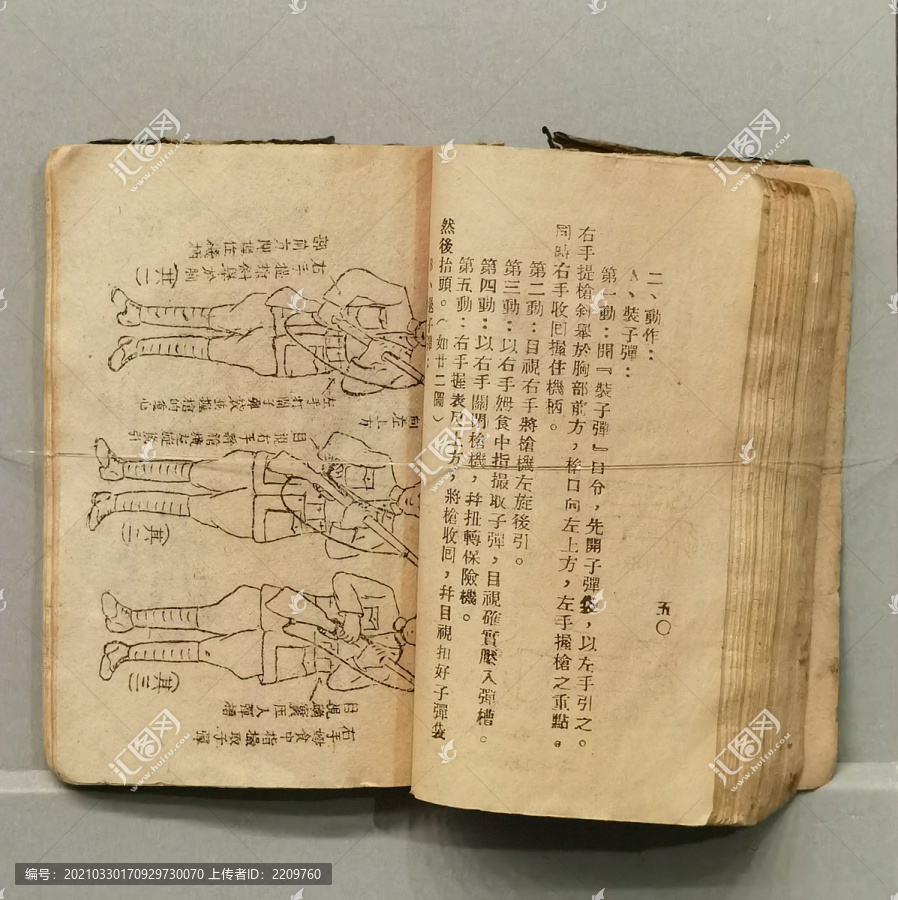 二、動作：
A、裝子彈：
第一動：開『裝子彈』口令，先開子彈袋，以左手引之。
右手提槍斜舉於胸部前方，槍口向左上方，左手握槍之重點。
同時右手收回握住機柄。
第二動：目視右手將槍機左旋後引。
第三動：以右手姆食中指撮取子彈，目視確實壓入彈槽。
第四動：以右手關閉槍機，幷扭轉保險機。
第五動：右手握表尺上方，將槍收回，幷目視扣好子彈袋
然後抬頭。（如廿二圖）
五〇
右手提槍斜舉於胸
部前方卽握住機柄
(其一)
左手打開子彈袋並握槍的重心
向左上方
目視右手將槍機左旋後引
(其二)
(其三)
右手姆食中指撮取子彈
目視確實壓入彈槽
汇图网
www.huitu.com
编号：20210330170929730070 上传者ID：2209760